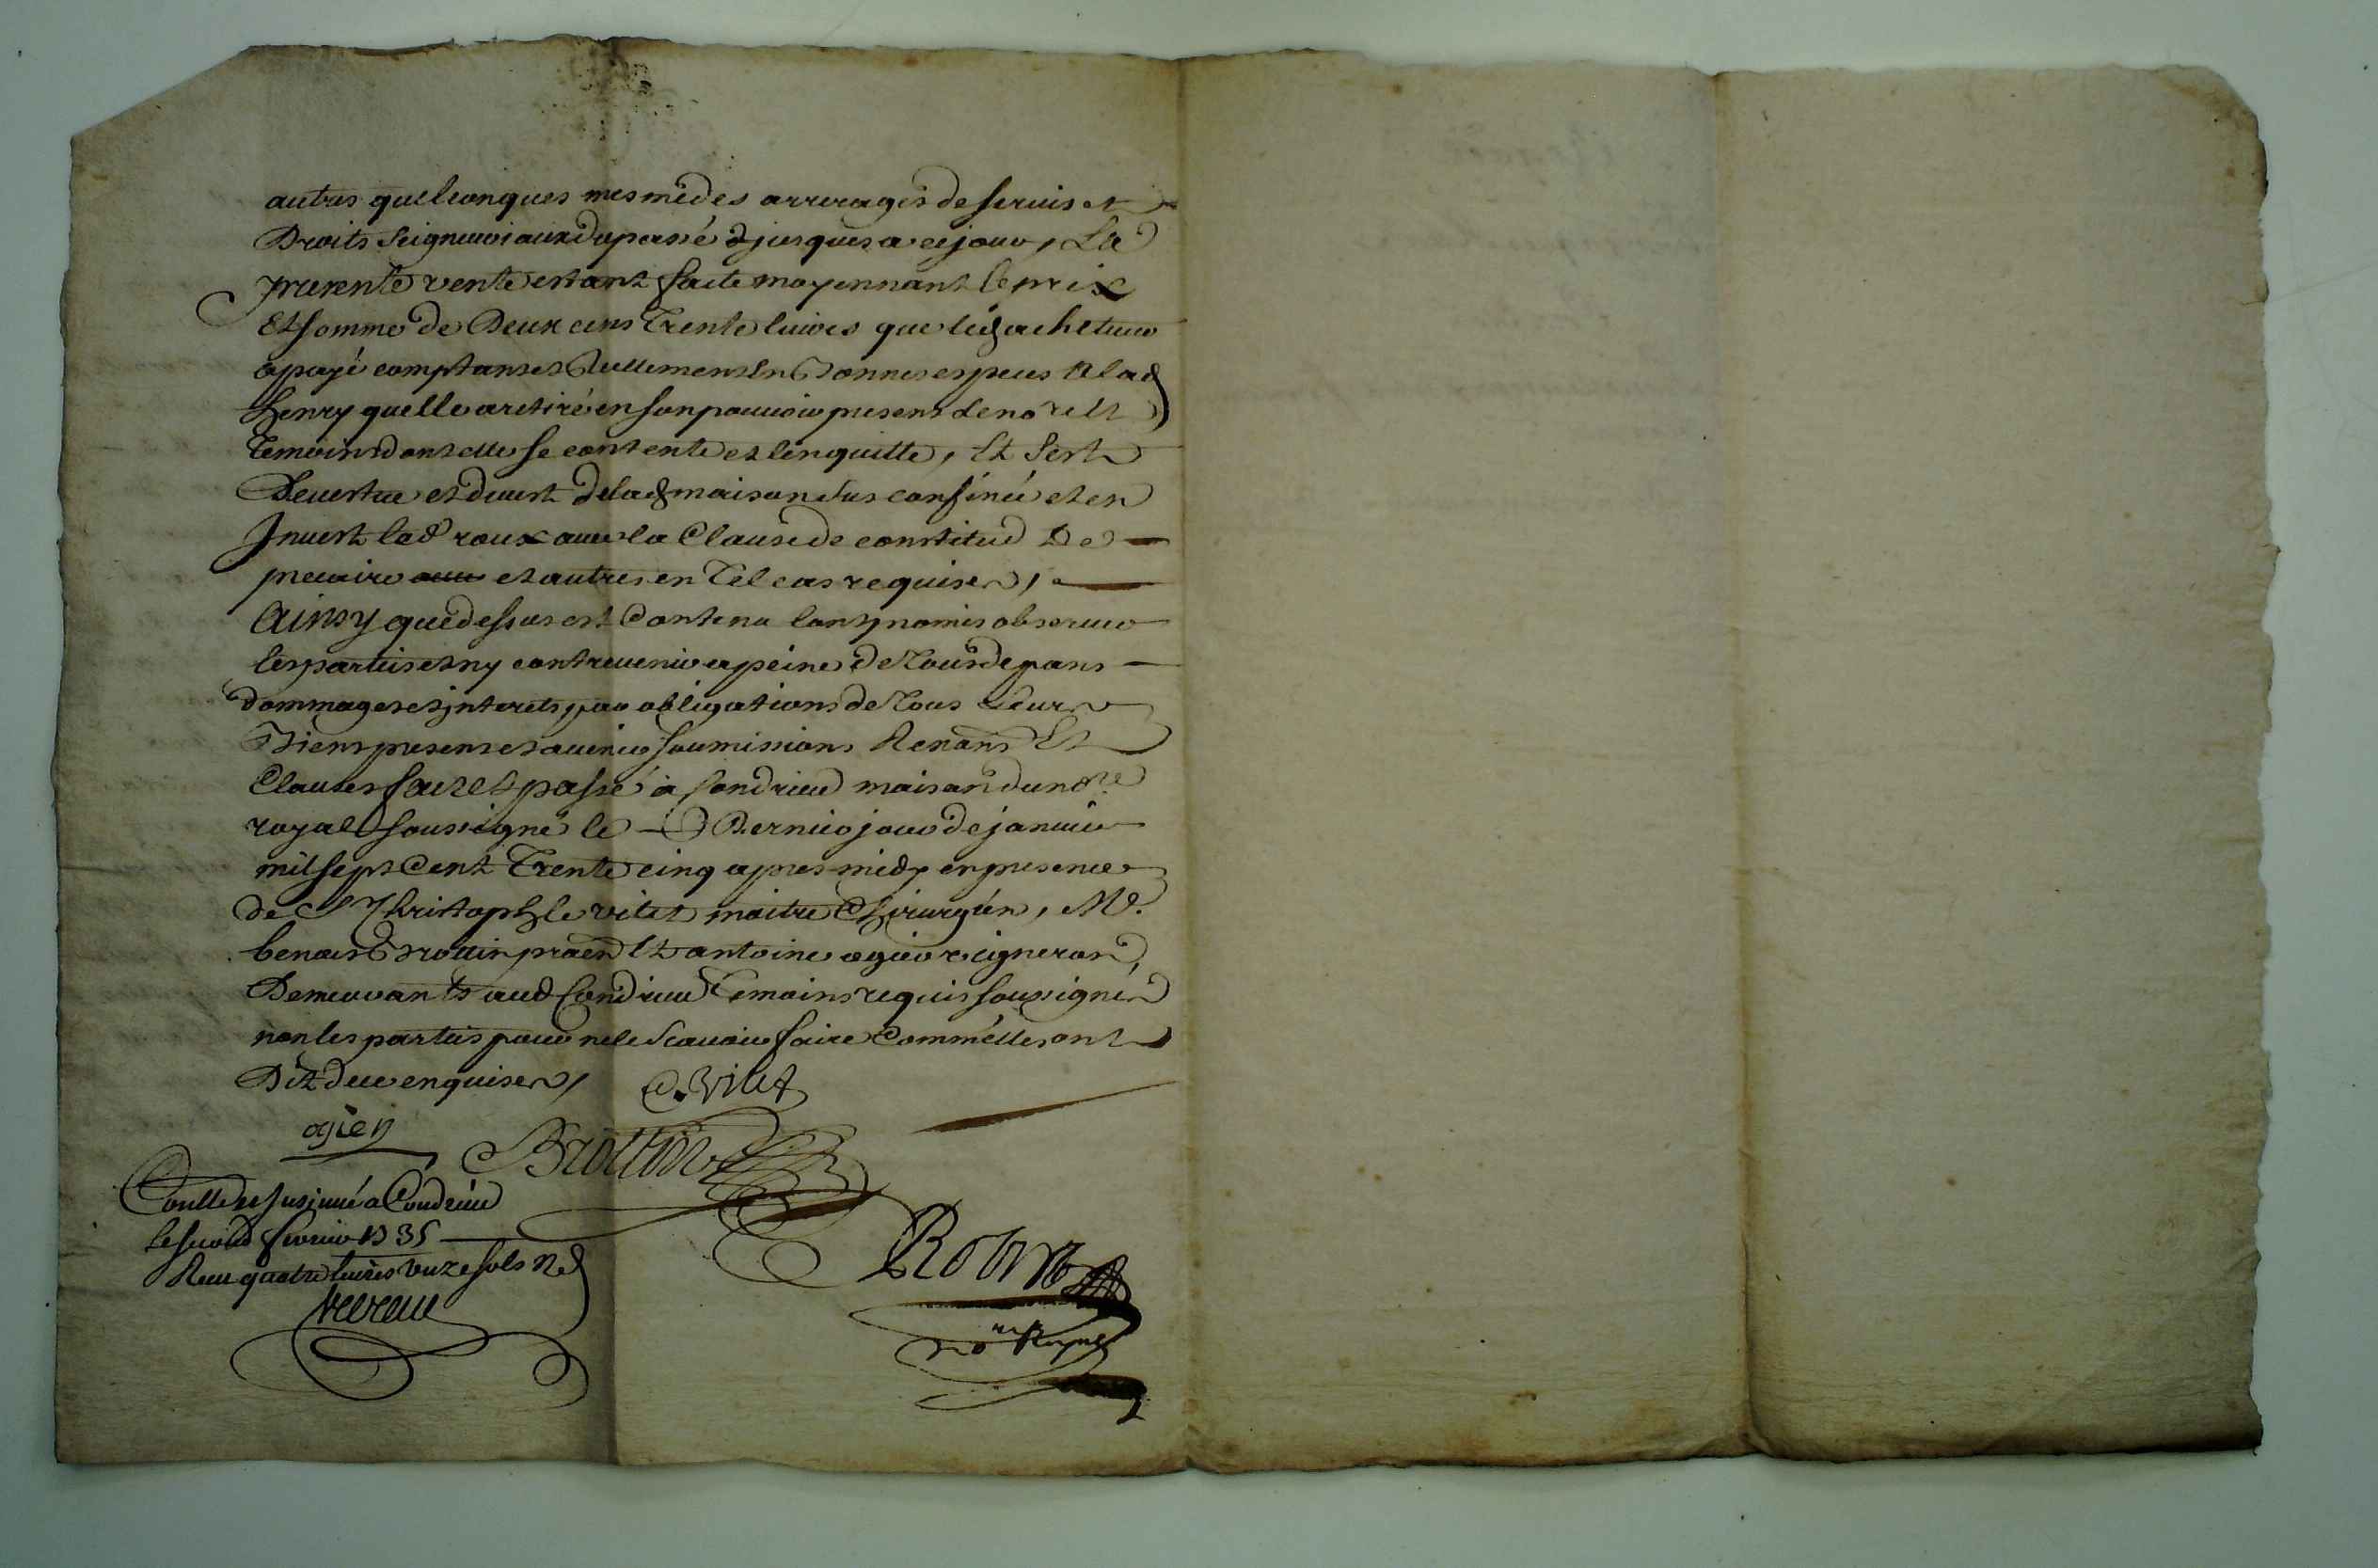 autres quelconques mesme des arrerages de servis et
Droits Seigneuriaux du passé & jusques a ce jour, La
presente vente estant faite moyennant le prix
Et somme de Deux cens Trente livres que led achetteur
a payé comptant et reellement en bonnes especes a lad
henry quelle a retiré en son pouvoir present le no.re Et
Temoins dont elle se contente et len quitte, Et sest
Devestue et devest de lad maison sus confinée et en
Jnvest led roux avec la Clause de constitud De
precaire et autres en Tel cas requises,
Ainsy que dessus est Contenu lont promis observer
les parties et ny contrevenir a peine de Tous depans
dommages et jnterets, par obligations de Tous Leurs
Biens presens et avenir soumissions Renons Et
Clauses fait et passé à Condrieu maison du no.re
royal soussigné le Dernier jour de janvier
mil sept Cent Trente cinq apres midy en presence
de Sr Christophle vitet maitre Chirurgien, Me.
benoist Brottin praen Et antoine ogier vigneron,
Demeurants aud Condrieu Temoins requis soussignés
non les parties pour ne le Scavoir faire Comme elles ont
Dit de ce enquises,
C. Vitet
ogier
Brottin
Conllé et Insinué a Condrieu
le second fevrier 1735
Receu quatre livres onze sols
Robert
no.re Royal